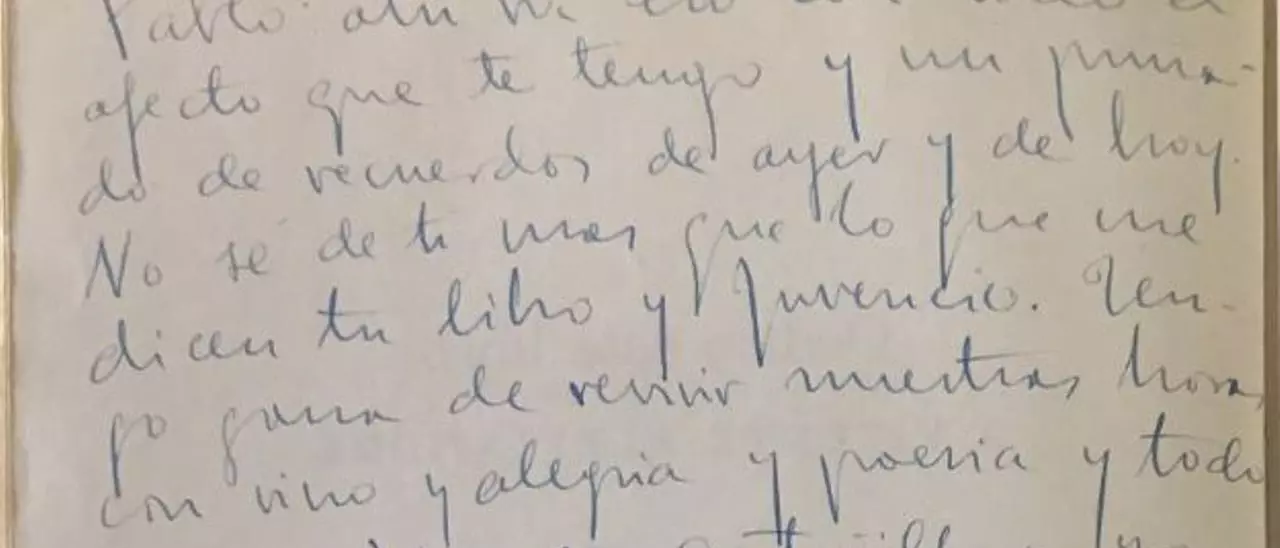 Pablo
afecto que te tengo y un puña-
do de recuerdos de ayer y de hoy.
No sé de ti mas que lo que me
dicen tu libro y Juvencio. Ten-
go gana de revivir nuestras horas
con vino y alegria y poesia y todo